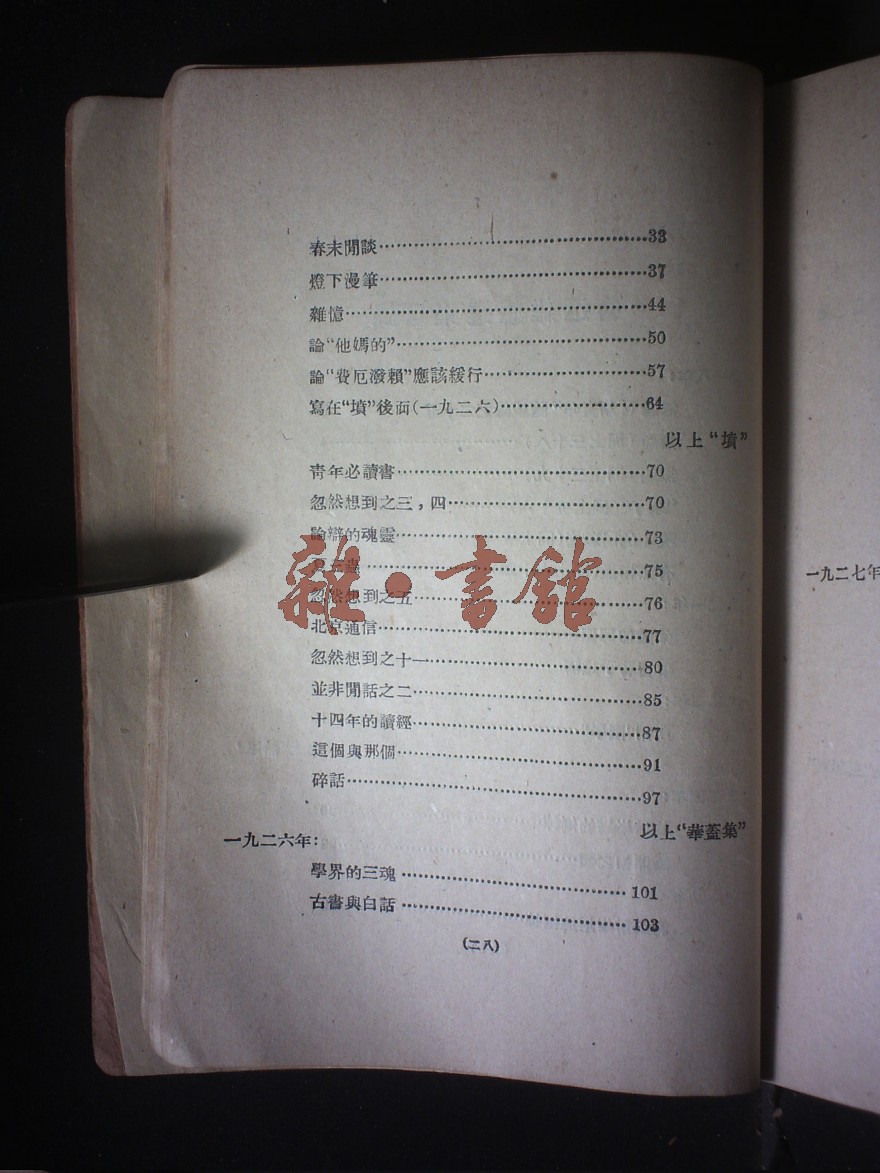 春末閒談…………………………33
燈下漫筆…………………………37
雜憶…………………………44
論“他媽的”…………………………50
論“費厄潑賴”應該緩行…………………………57
寫在“墳”後面(一九二六)…………………………64
以上“墳”
靑年必讀書…………………………70
忽然想到之三，四…………………………70
論辯的魂靈…………………………73
…………………………75
忽然想到之五…………………………76
北京通信…………………………77
忽然想到之十一…………………………80
並非閒話之二…………………………85
十四年的讀經…………………………87
這個與那個…………………………91
碎話…………………………97
以上“華蓋集”
一九二六年：
學界的三魂…………………………101
古書與白話…………………………103
(二八)
雜·書館
一九二七年